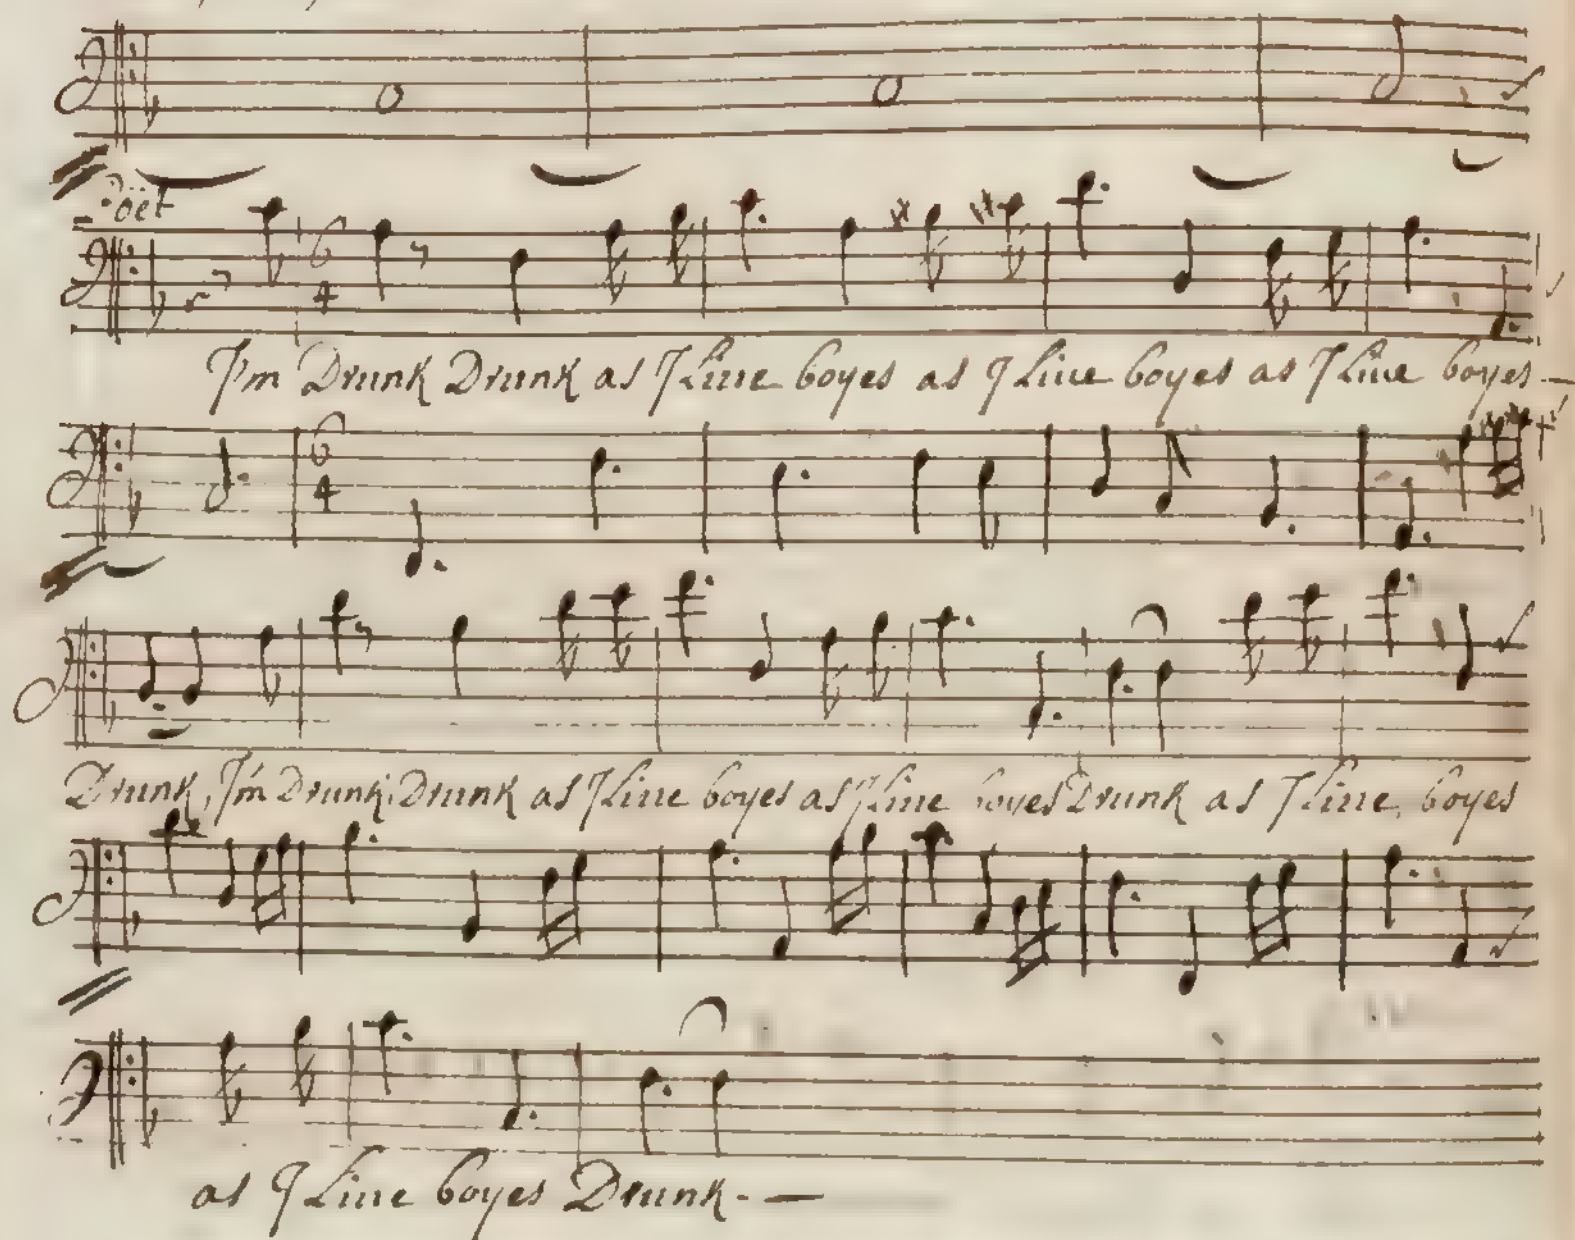 Poet
I'm Drunk Drunk as I Liue boyes as I Liue boyes as I Liue boyes —
Drunk, I'm Drunk, Drunk as I Liue boyes as I Liue boyes Drunk as I Liue boyes
as I Liue boyes Drunk - —